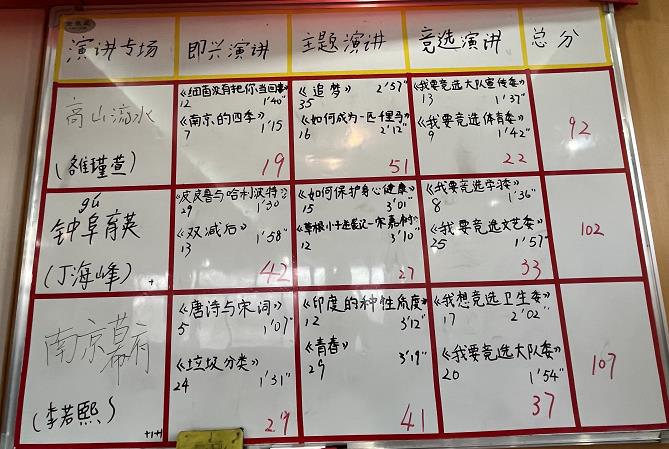 演讲专场 即兴演讲 主题演讲 竞选演讲 总分
高山流水
(雒瑾萱)
《细菌没有把你当回事》
12 1'40"
《南京的四季》
7 1'15
19
《追梦》 2'57"
35
《如何成为一匹千里马》
16 2'12"
51
《我要竞选大队宣传委》
13 1'37"
《我要竞选体育委》
9 1'42"
22
92
gù
钟阜育英
(丁海峰) +
《皮皮鲁与哈利波特》
29 1'30"
《双减后》
13 1'58"
42
《如何保护身心健康》
15 3'01"
12 3'10"
27
《我要竞选学习委》
8 1'36"
《我要竞选文艺委》
25 1'57"
33
102
南京幕府
(李若熙) +1+1
《唐诗与宋词》
5 1'07"
《垃圾分类》
24 1'31"
29
《印度的种性制度》
12 3'12"
《青春》
29 3'19"
41
《我想竞选卫生委》
17 2'02"
《我要竞选大队委》
20 1'54"
37
107